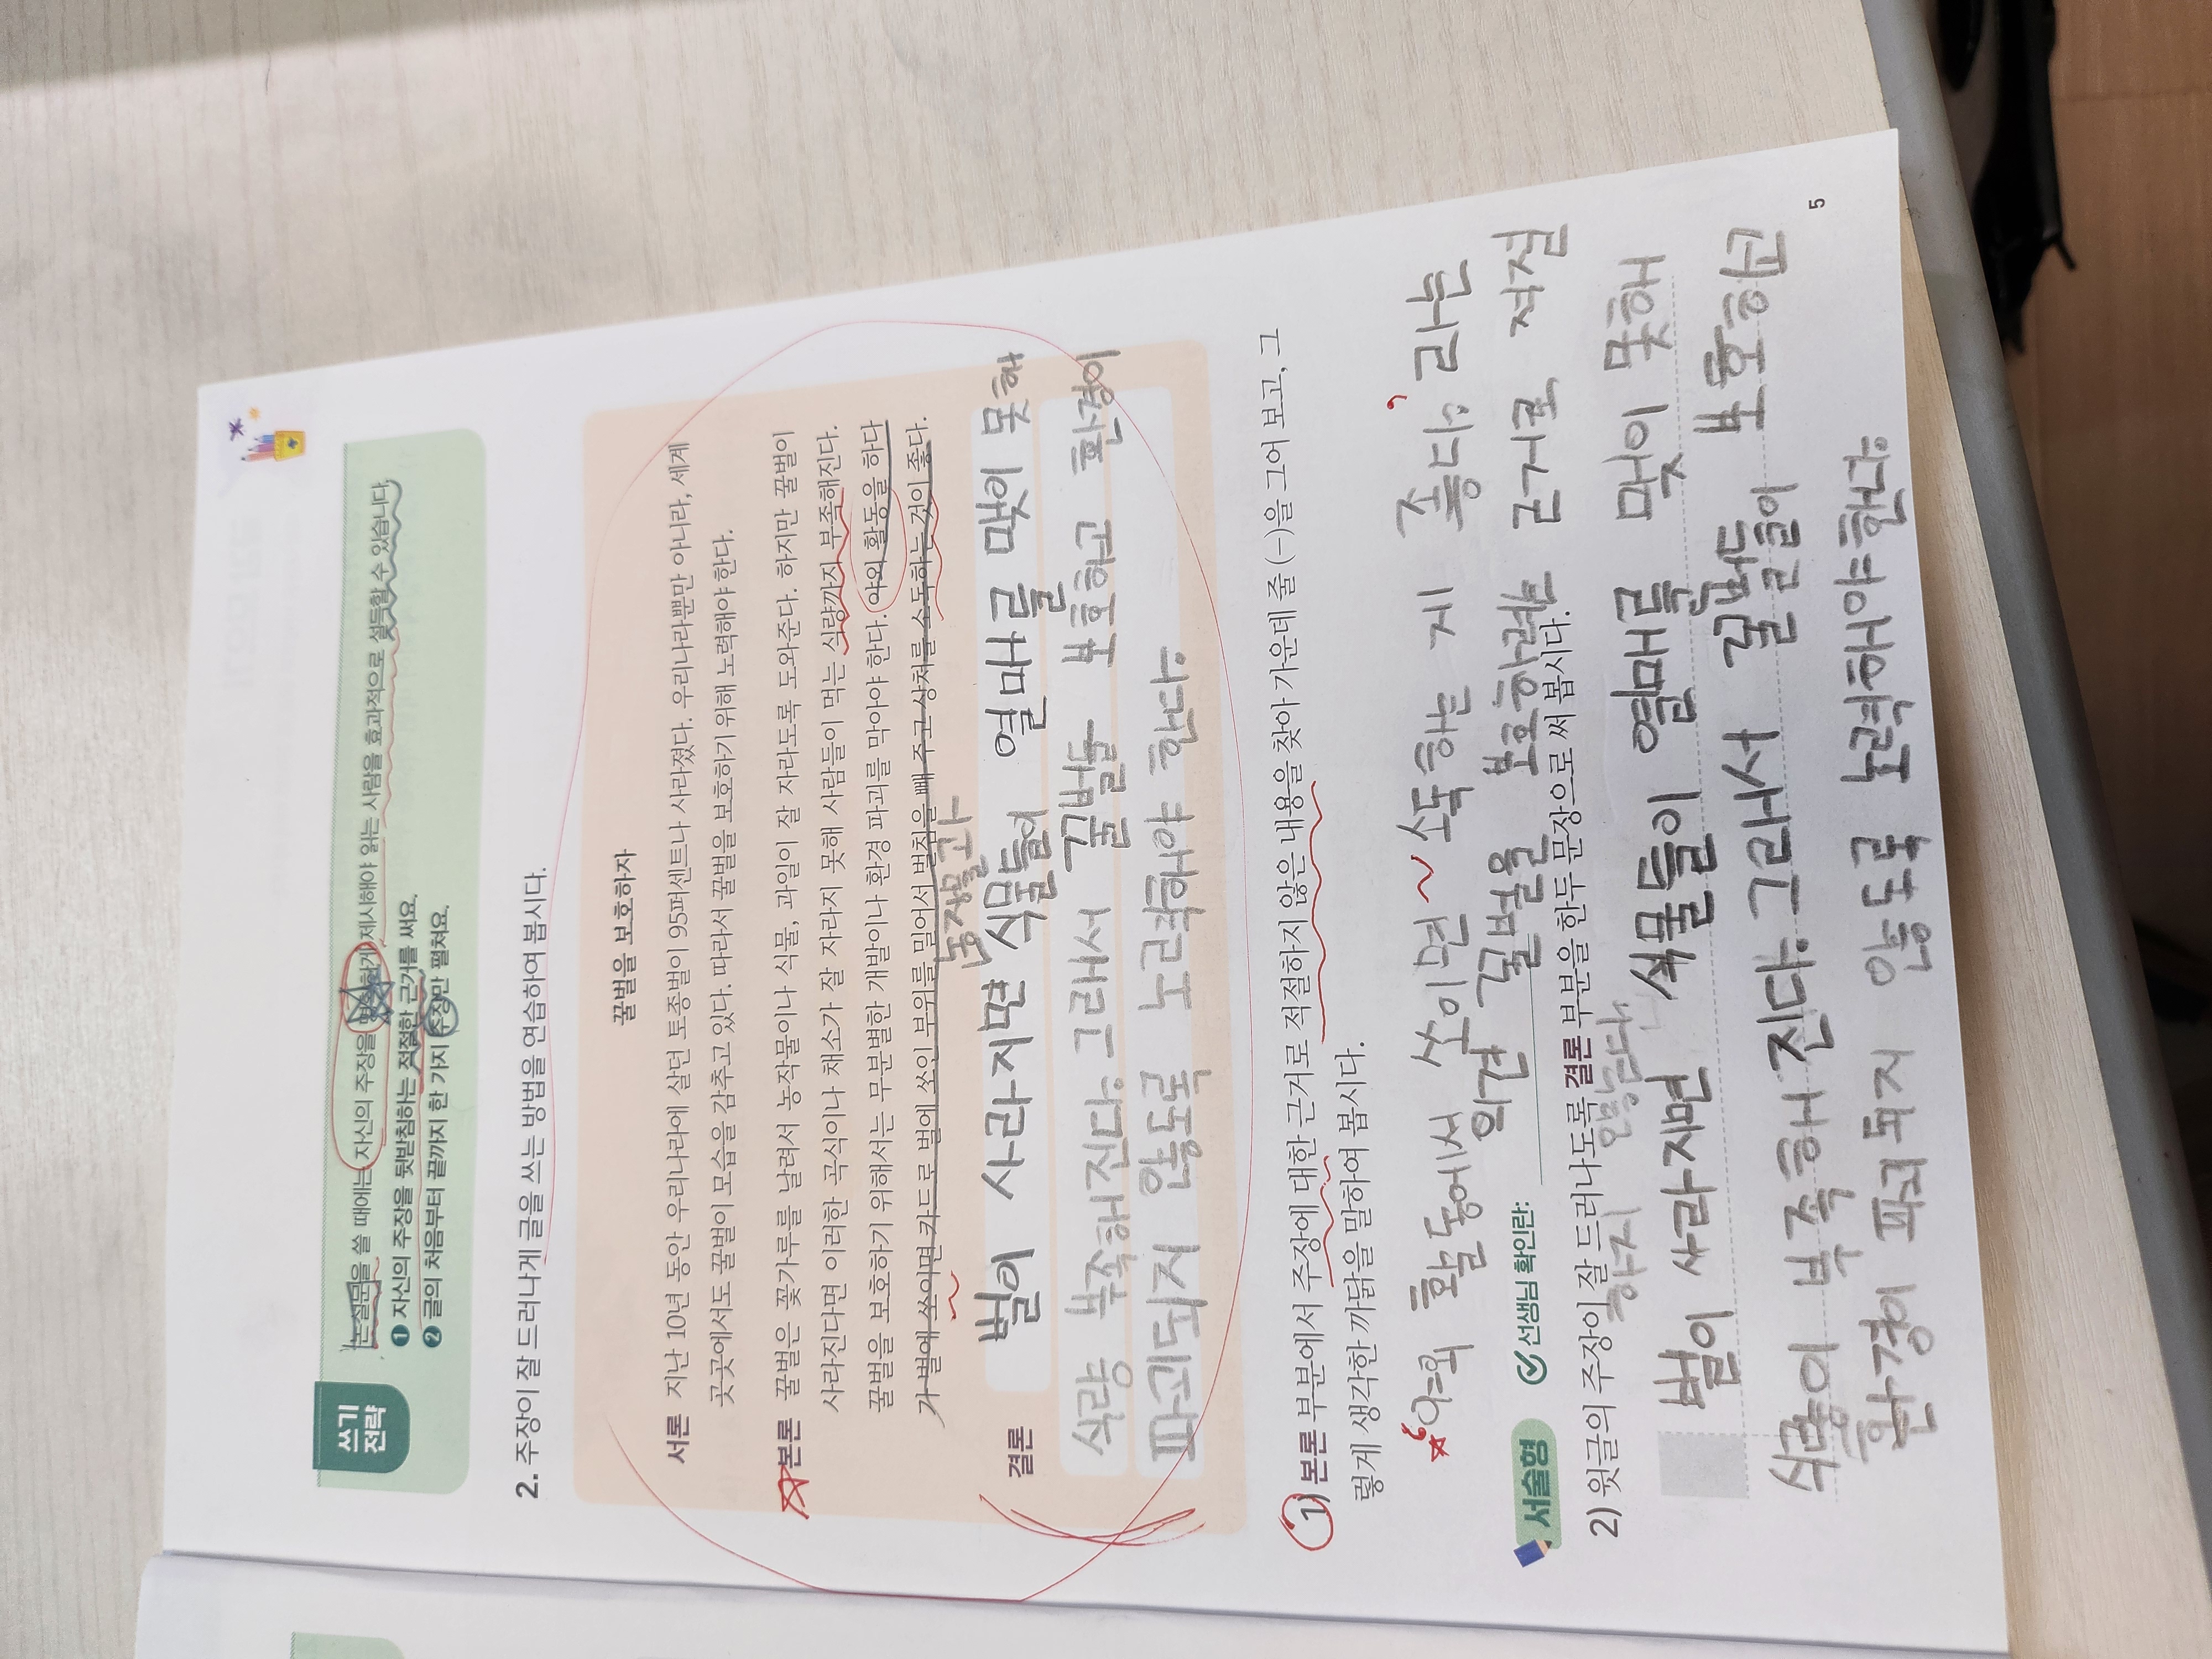 쓰기
전략
논설문을 쓸 때에는 자신의 주장을 명확하게 제시해야 읽는 사람을 효과적으로 설득할 수 있습니다.
❶ 자신의 주장을 뒷받침하는 적절한 근거를 써요.
❷ 글의 처음부터 끝까지 한 가지 주장만 펼쳐요.
2. 주장이 잘 드러나게 글을 쓰는 방법을 연습하여 봅시다.
꿀벌을 보호하자
서론 지난 10년 동안 우리나라에 살던 토종벌이 95퍼센트나 사라졌다. 우리나라뿐만 아니라, 세계
곳곳에서도 꿀벌이 모습을 감추고 있다. 따라서 꿀벌을 보호하기 위해 노력해야 한다.
본론 꿀벌은 꽃가루를 날려서 농작물이나 식물, 과일이 잘 자라도록 도와준다. 하지만 꿀벌이
사라진다면 이러한 곡식이나 채소가 잘 자라지 못해 사람들이 먹는 식량까지 부족해진다.
꿀벌을 보호하기 위해서는 무분별한 개발이나 환경 파괴를 막아야 한다. 야외 활동을 하다
가 벌에 쏘이면 카드로 벌에 쏘인 부위를 밀어서 벌침을 빼 주고 상처를 소독하는 것이 좋다.
농장물과
결론 벌이 사라지면 식물들이 열매를 맺이 못해
식량 부족해진다. 그래서 꿀벌들 보호하고 환경이
파괴되지 않도록 노력해야 한다.
1) 본론 부분에서 주장에 대한 근거로 적절하지 않은 내용을 찾아 가운데 줄(-)을 그어 보고, 그
렇게 생각한 까닭을 말하여 봅시다.
야외 활동에서 쏘이면 ~ 소독하는 게 좋다.' 라는
의견 꿀벌을 보호하려는 근거로 적절
하지 않다
서술형 선생님 확인란:
2) 윗글의 주장이 잘 드러나도록 결론 부분을 한두 문장으로 써 봅시다.
벌이 사라지면 식물들이 열매를 맺이 못해
식량이 부족해진다. 그래서 꿀벌들이 보호하고
환경이 파괴되지 않도록 노력해야한다.
5